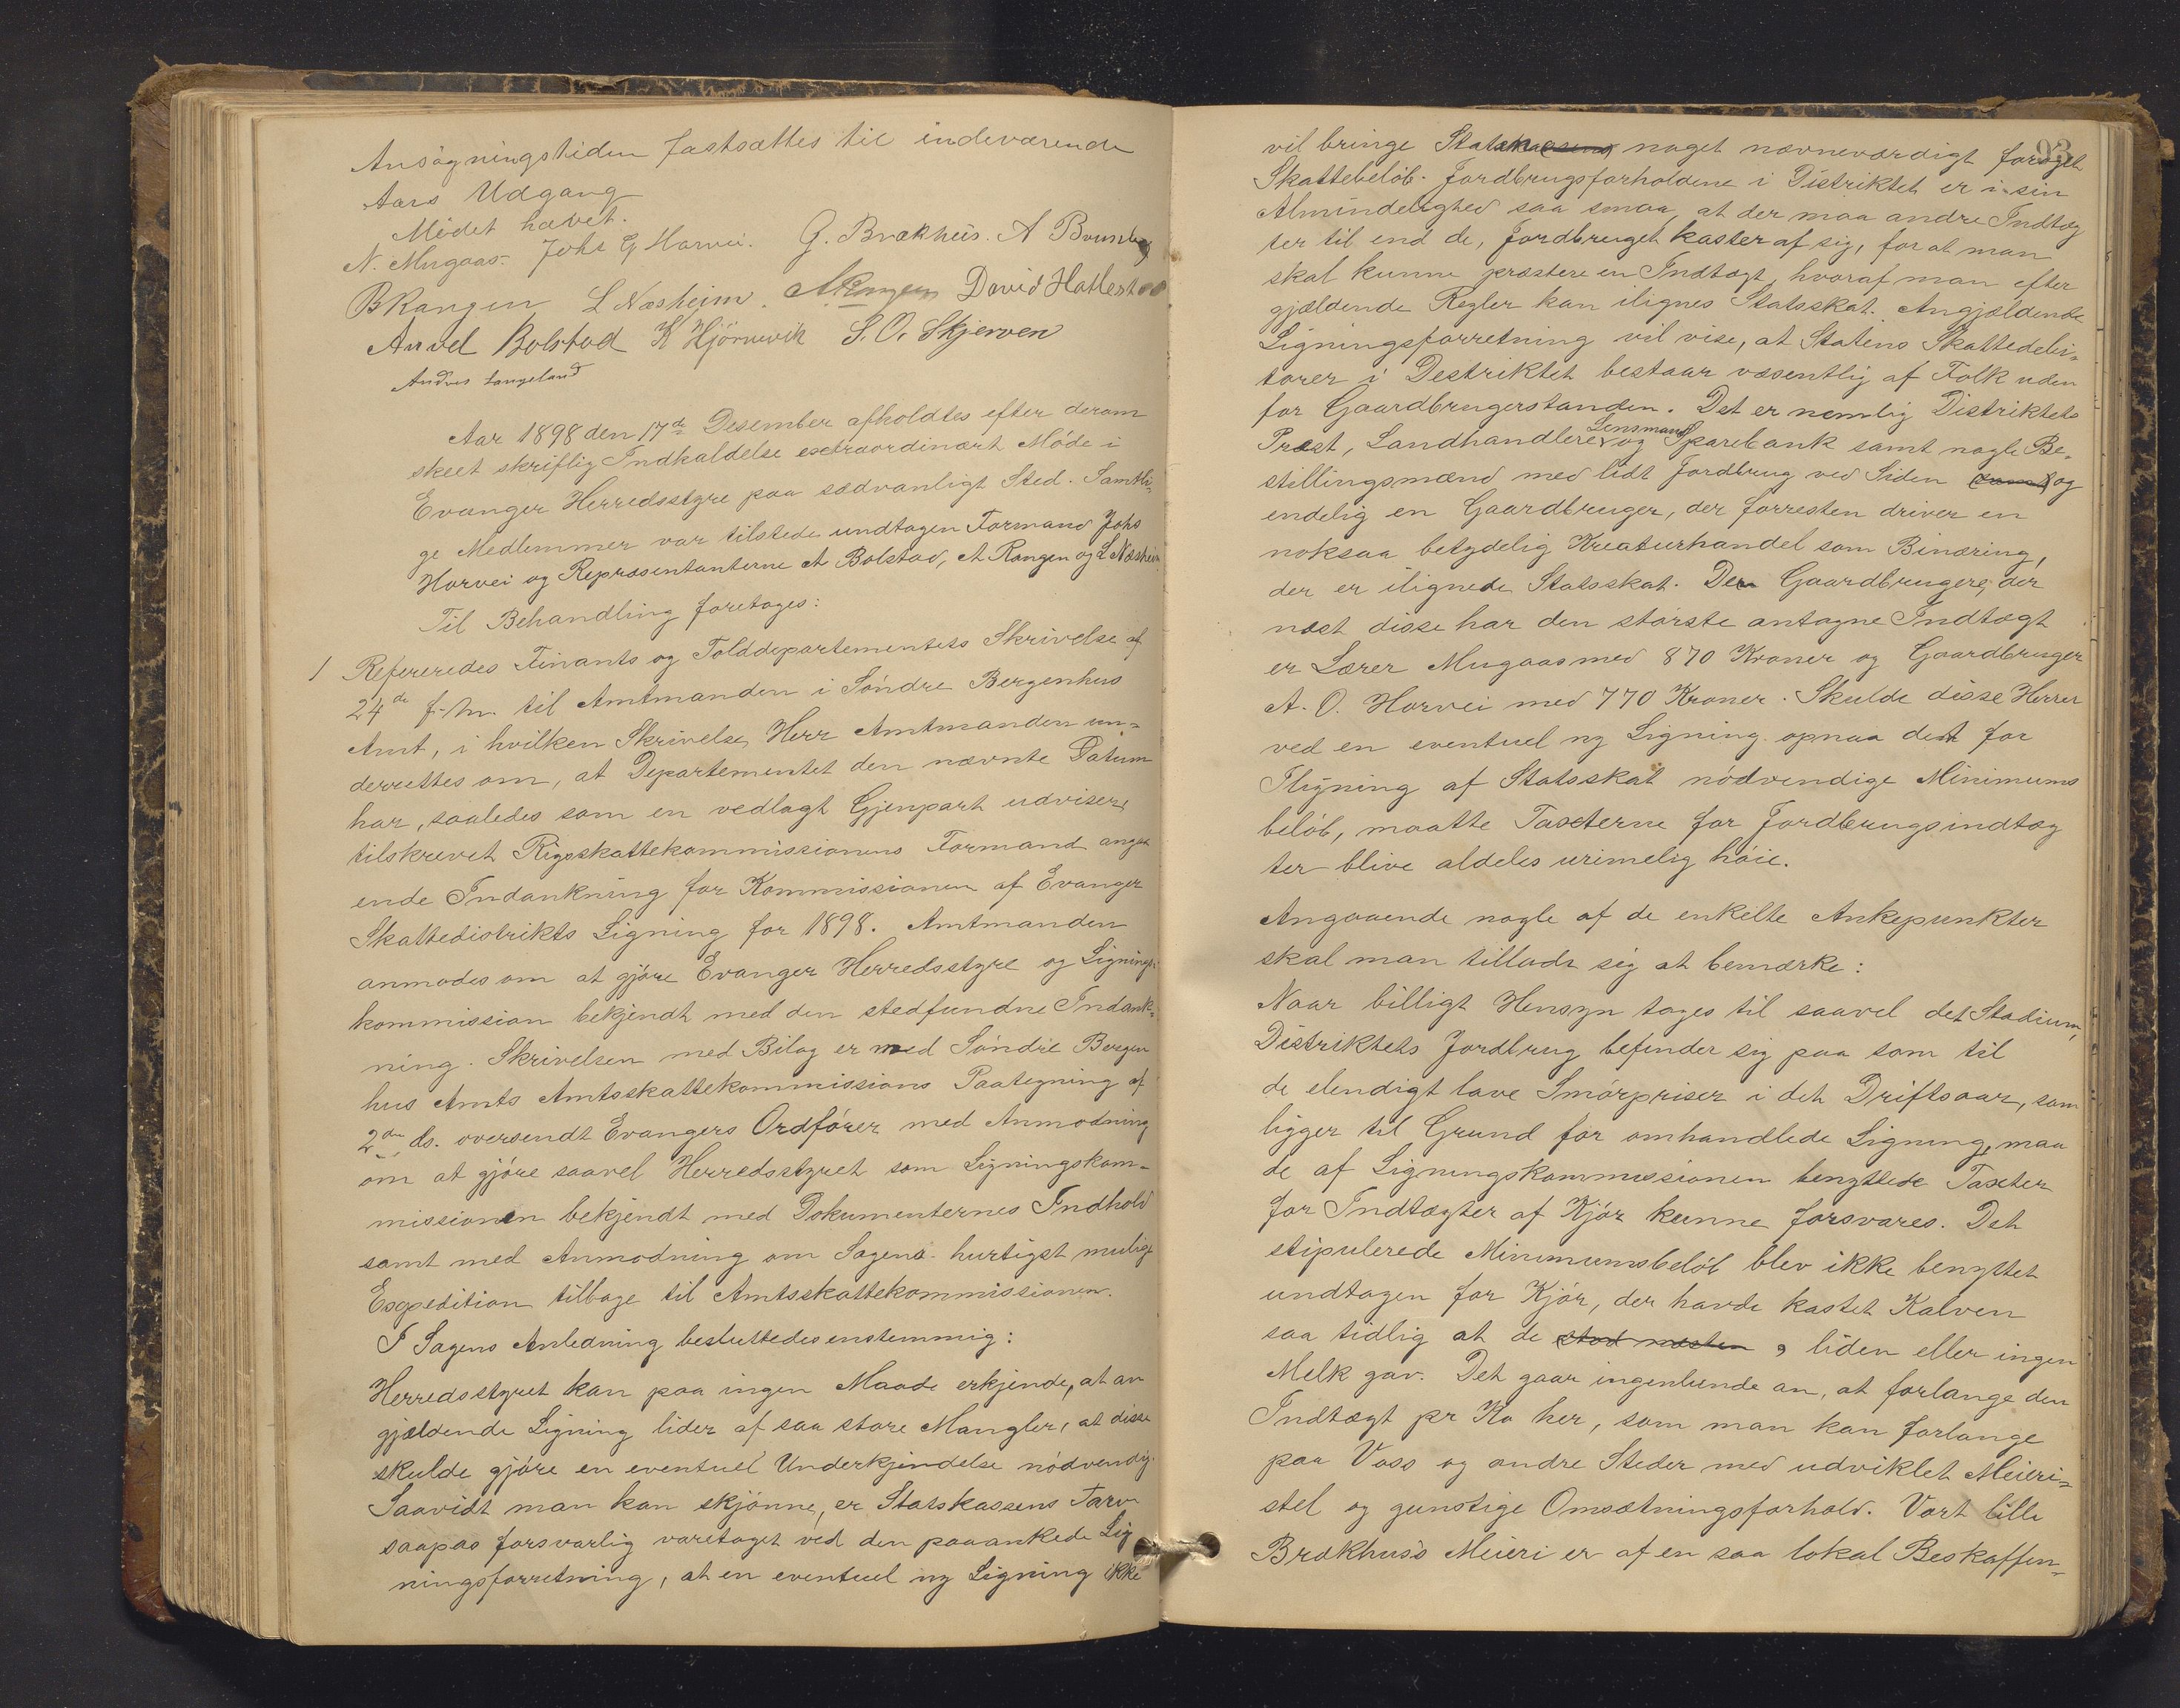 Ansøgningstiden fastsættes til indeværende
Aars Udgang
Mødet hævet.
N. Mugaas. Johs G Horvei. G. Brækhus. A Brunborg
B Rangen L Næsheim. A Rangen David Hatlestad
Anvel Bolstad K Hjörnevik S. O. Skjerven
Andres Langeland
Aar 1898 den 17de Desember afholdtes efter derom
skeet skriftlig Indkaldelse extraordinært Møde i
Evanger Herredsstyre paa sædvanligt Sted. Samtli-
ge Medlemmer var tilstede undtagen Formand Johs
Horvei og Repræsentanterne A Bolstad, A Rangen og L Næsheim
Til Behandling foretages:
1 Refereredes Finants og Tolddepartementets Skrivelse af
24de f. M. til Amtmanden i Søndre Bergenhus
Amt, i hvilken Skrivelse, Herr Amtmanden un-
derrettes om, at Departementet den nævnte Datum
har, saaledes som en vedlagt Gjenpart udviser,
tilskrevet Rigsskattekommissionens Formand angaa
ende Indankning for Kommissionen af Evanger
Skattedistrikts Ligning for 1898. Amtmanden
anmodes om at gjøre Evanger Herredsstyre og Lignings-
kommission bekjendt med den stedfundne Indank-
ning. Skrivelsen med Bilag er med Søndre Bergen
hus Amts Amtsskattekommissions Paategning af
2den ds. oversendt Evangers Ordfører med Anmodning
om at gjøre saavel Herredsstyret som Ligningskom-
missionen bekjendt med Dokumenternes Indhold
samt med Anmodning om Sagens hurtigst mulige
Expedition tilbage til Amtsskattekommissionen.
I Sagens Anledning besluttedes enstemmig:
Herredsstyret kan paa ingen Maade erkjende, at an
gjældende Ligning lider af saa store Mangler, at disse
skulde gjøre en eventuel Underkjendelse nødvendig.
Saavidt man kan skjønne, er Statskassens Tarv
saapas forsvarlig varetaget ved den paaankede Lig
ningsforretning, at en eventuel ny Ligning ikke
93
vil bringe Staten noget nævneværdigt forøget
Skattebeløb. Jordbrugsforholdene i Distriktet er i sin
Almindelighed saa smaa, at der maa andre Indtæg
ter til end de, Jordbruget kaster af sig, for at man
skal kunne præstere en Indtægt, hvoraf man efter
gjældende Regler kan ilignes Statsskat. Angjældende
Ligningsforretning vil vise, at Statens Skattedebi-
torer i Destriktet bestaar væsentlig af Folk uden
for Gaardbrugerstanden. Det er nemlig Distriktets
Præst, Landhandlere, Lensmand og Sparebank samt nogle Be-
stillingsmænd med lidt Jordbrug ved Siden og
endelig en Gaardbruger, der forresten driver en
noksaa betydelig Kreaturhandel som Binæring,
der er ilignede Statsskat. Den Gaardbrugere, der
næst disse har den største antagne Indtægt
er Lærer Mugaas med 870 Kroner og Gaardbruger
A. O. Horvei med 770 Kroner. Skulde disse Herrer
ved en eventuel ny Ligning opnaa det for
Iligning af Statsskat nødvendige Minimums
beløb, maatte Taxterne for Jordbrugsindtæg
ter blive aldeles urimelig høie.
Angaaende nogle af de enkelte Ankepunkter
skal man tillade sig at bemærke:
Naar billigt Hensyn tages til saavel det Stadium,
Distriktets Jordbrug befinder sig paa som til
de elendigt lave Smørpriser i det Driftsaar, som
ligger til Grund for omhandlede Ligning, maa
de af Ligningskommissionen benyttede Taxter
for Indtægter af Kjør kunne forsvares. Det
stipulerede Minimumsbeløb blev ikke benyttet
undtagen for Kjør, der havde kastet Kalven
saa tidlig at de stod næsten, liden eller ingen
Melk gav. Det gaar ingenlunde an, at forlange den
Indtægt pr Ko her, som man kan forlange
paa Voss og andre Steder med udviklet Meieri-
stel og gunstige Omsætningsforhold. Vort lille
Brækhus's Meieri er af en saa lokal Beskaffen-